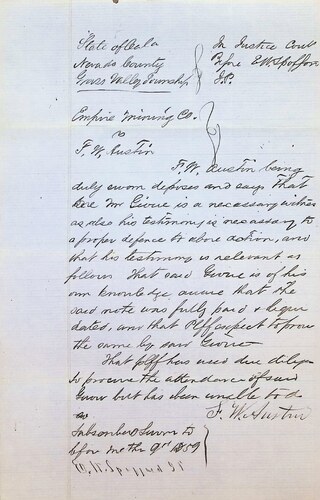 State of Cala In Justice Court
Nevada County Before E.W. Spofford
Grass Valley Township J.P.
Empire Mining Co.
vs
F. W. Austin
F. W. Austin being
duly sworn deposes and says That
Mr Givue is a necessary witness
as also his testimony is necessary to
a proper defence to above action, and
that his testimony is relevant as
follows That said Givue is of his
own knowledge aware that the
said note was fully paid &
dated, and that Plff expect to prove
the same by said Givue
That plff has used due diligen
to procure the attendance of said
Givue but has been unable to do
so F. W. Austin
Subscribed & Sworn to
before me the 9th 1859